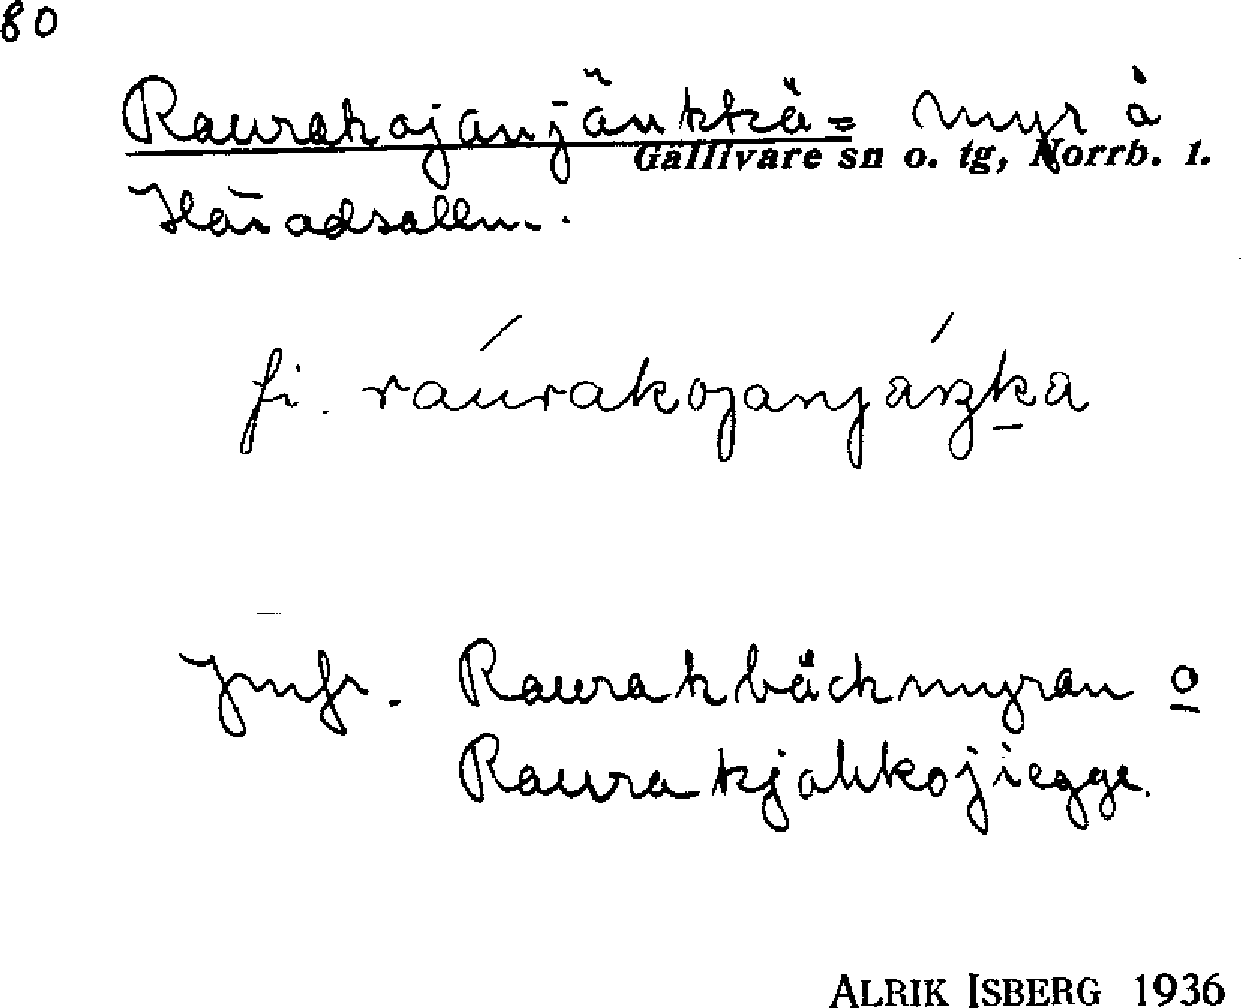 80
Raurakojanjänkkä = myr å
Gällivare sn o. tg, Norrb. l.
Häradsallm.
fi. ráurakojanjáŋka
Jmfr. Raurakbäckmyran o
Raurakjohkojiegge.
ALRIK ISBERG 1936